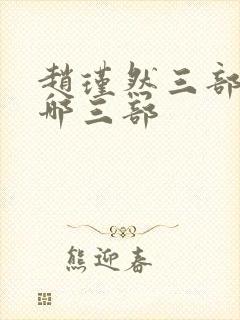 趙瑾然三部
哪三部
熊迎春